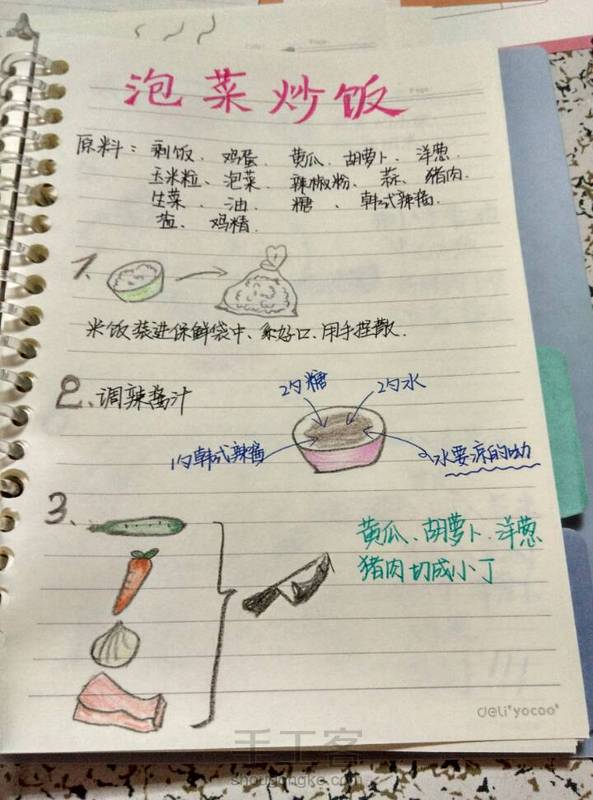 泡菜炒饭
原料：剩饭、鸡蛋 黄瓜、胡萝卜、洋葱
玉米粒、泡菜 辣椒粉、蒜、猪肉
生菜、油 糖、韩式辣酱
鸡精
1.
米饭装进保鲜袋中、系好口、用手捏散.
2、调辣酱汁
2勺糖 2勺水
1勺韩式辣酱 水要凉的呦
3、
黄瓜、胡萝卜、洋葱
猪肉切成小丁
deli yocoo
手工客
shougongke.com